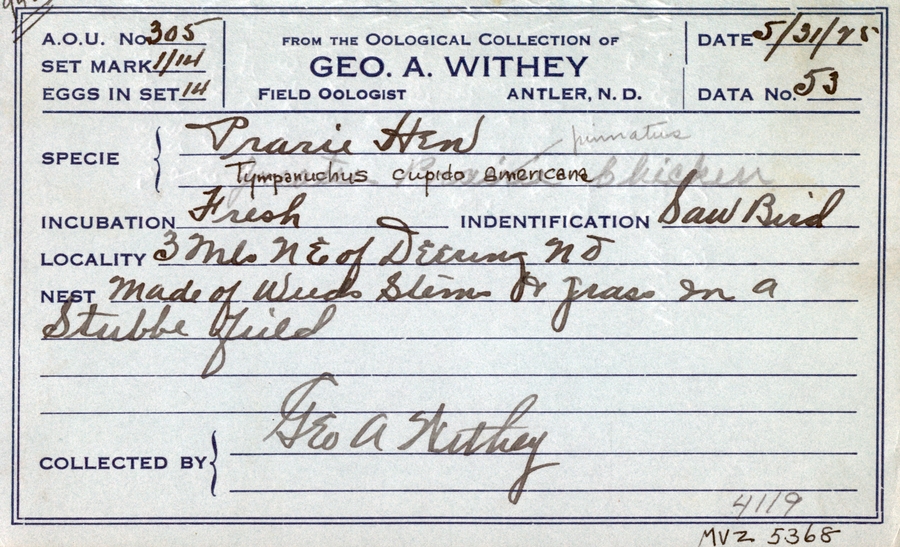 A.O.U. No. 305
SET MARK 1/14
EGGS IN SET 14
FROM THE OOLOGICAL COLLECTION OF
GEO. A. WITHEY
FIELD OOLOGIST ANTLER, N. D.
DATE 5/31/25
DATA No. 53
SPECIE Prarie Hen pinnatus
Tympanuchus cupido americana Chicken
INCUBATION Fresh INDENTIFICATION Saw Bird
LOCALITY 3 Mls N E of Deering ND
NEST Made of Weeds Stems & grass in a
Stubbe field
COLLECTED BY Geo A Withey
4119
MVZ 5368